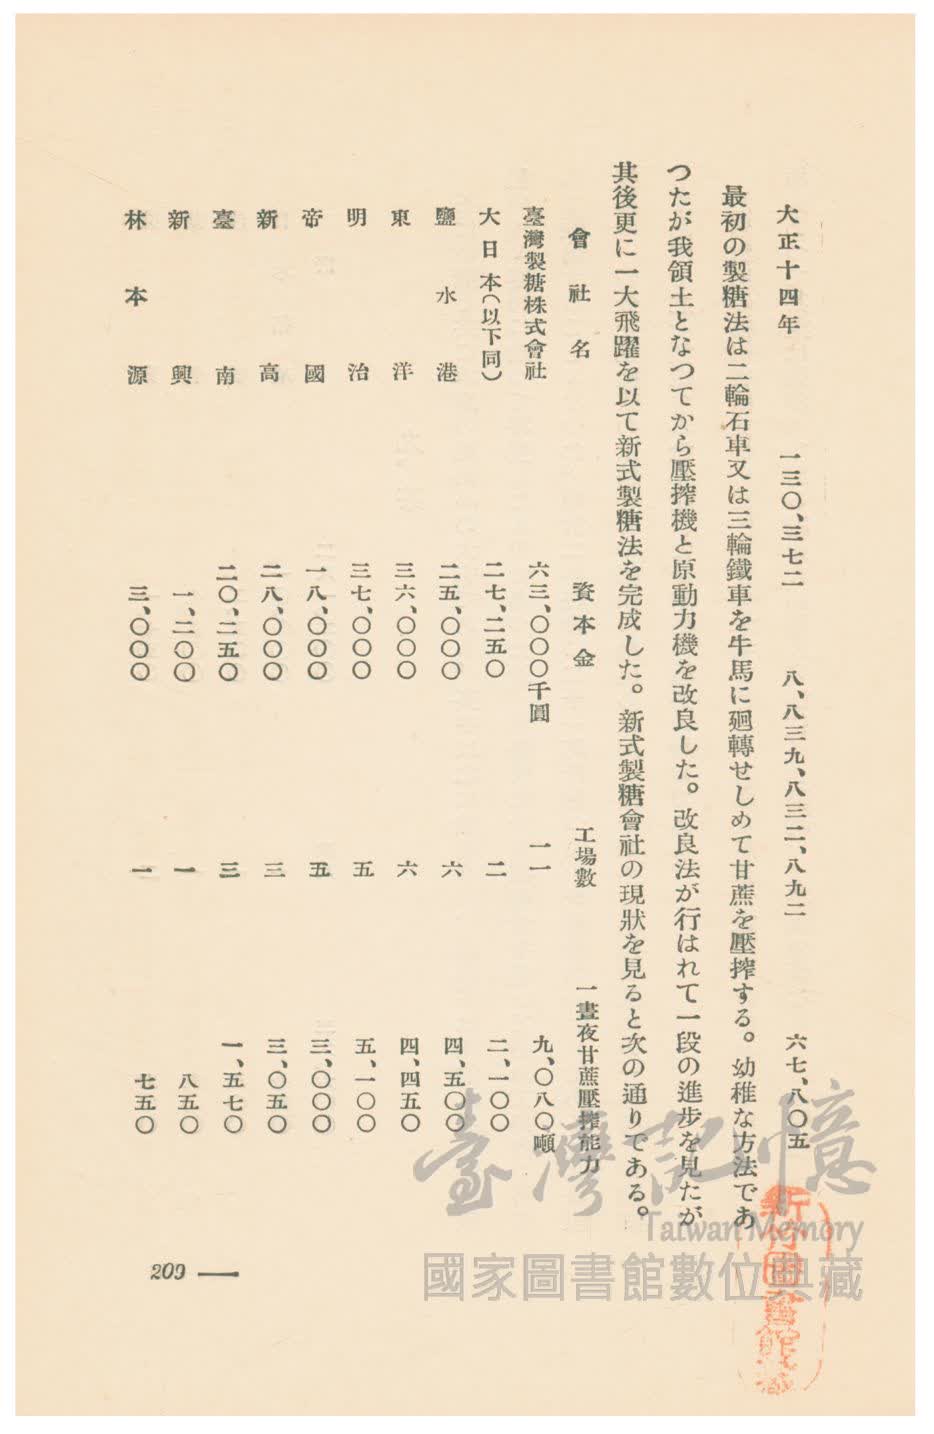 大正十四年　一三〇、三七二　八、八三九、八三二、八九二　六七、八〇五
最初の製糖法は二輪石車又は三輪鐵車を牛馬に廻轉せしめて甘蔗を壓搾する。幼稚な方法であ
つたが我領土となつてから壓搾機と原動力機を改良した。改良法が行はれて一段の進步を見たが
其後更に一大飛躍を以て新式製糖法を完成した。新式製糖會社の現狀を見ると次の通りである。
會社名　資本金　工場數　一晝夜甘蔗壓搾能力
臺灣製糖株式會社　六三、〇〇〇千圓　一一　九、〇八〇噸
大日本(以下同)　二七、二五〇　二　二、一〇〇
鹽水港　二五、〇〇〇　六　四、五〇〇
東洋　三六、〇〇〇　六　四、四五〇
明治　三七、〇〇〇　五　五、一〇〇
帝國　一八、〇〇〇　五　三、〇〇〇
新高　二八、〇〇〇　三　三、〇五〇
臺南　二〇、二五〇　三　一、五七〇
新興　一、二〇〇　一　八五〇
林本源　三、〇〇〇　一　七五〇
209
臺灣記憶
Taiwan Memory
國家圖書館數位典藏
新竹圖書館藏